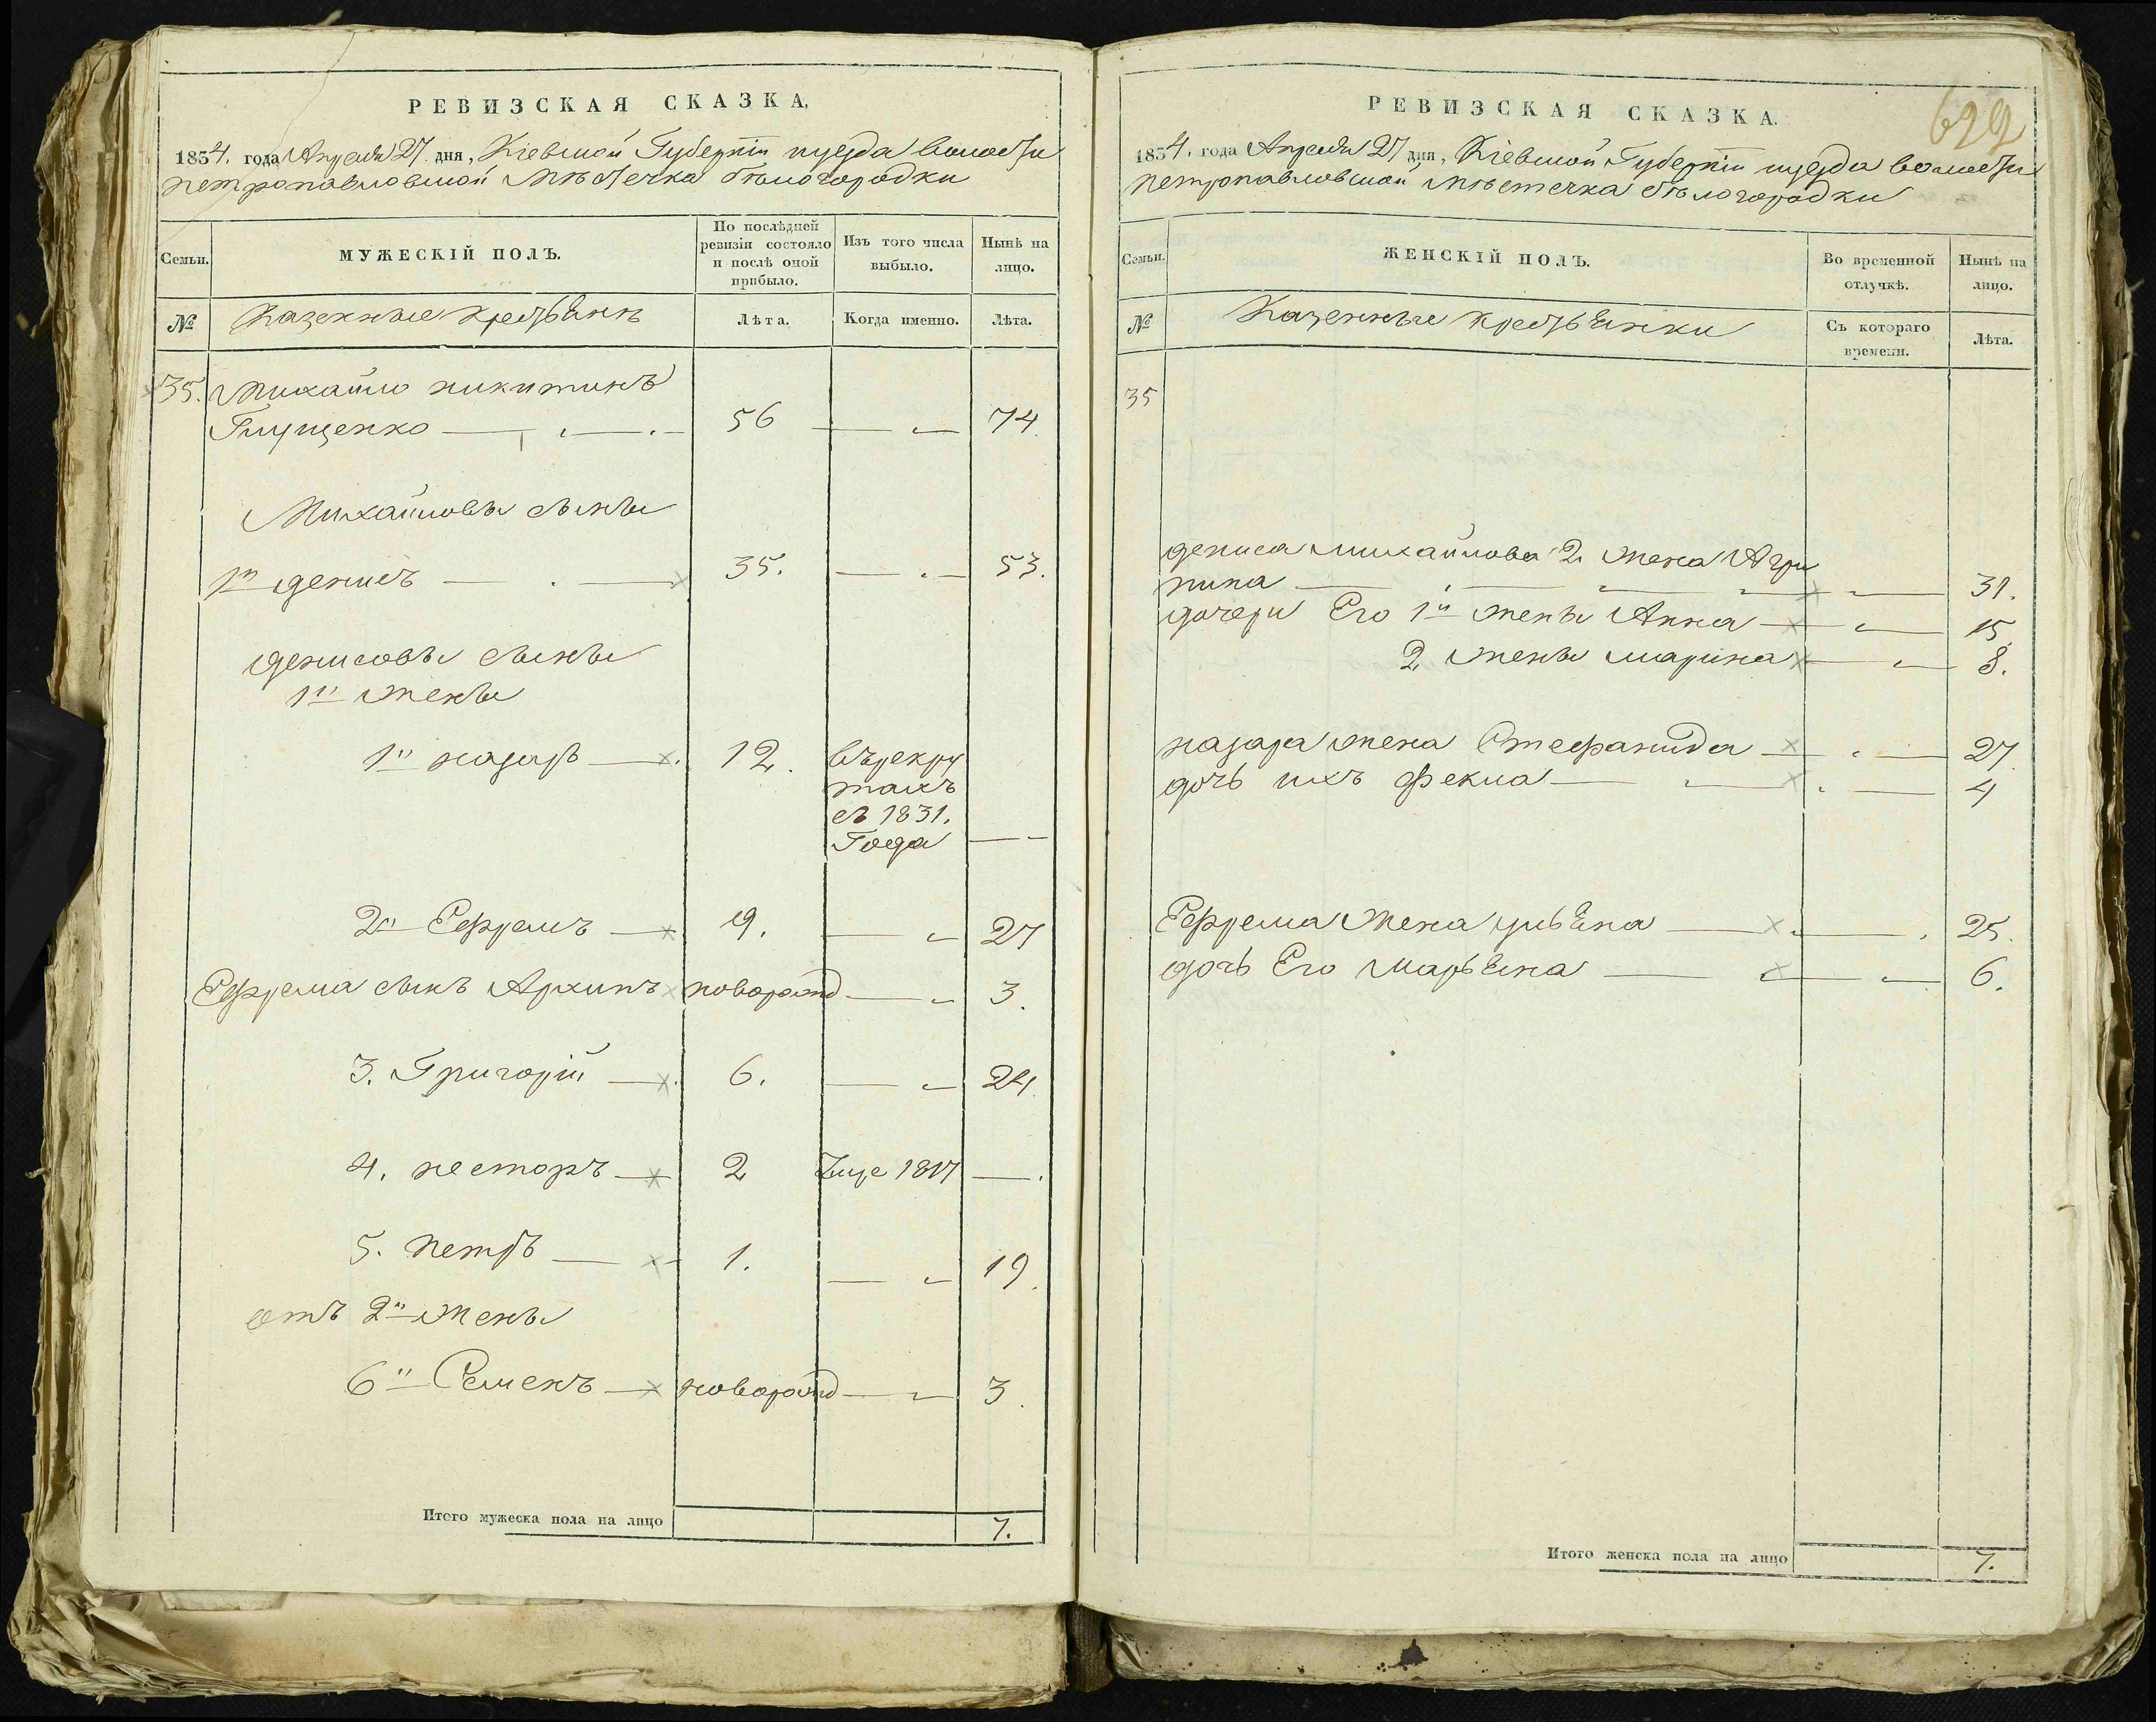 РЕВИЗСКАЯ СКАЗКА,
1834. года Апреля 27. дня, Кіевской Губерніи иуезда волости
петропавловской Мѣстечка бѣлогородки
Семьи.
МУЖЕСКІЙ ПОЛЪ.
По послѣдней
ревизіи состояло
и послѣ оной
прибыло.
Изъ того числа
выбыло.
Нынѣ на
лицо.
№
Казенные крестьяне
Лѣта.
Когда именно.
Лѣта.
35. Михайло никитинъ
Глущенко 56 74.
Михайловы сыны
1й денисъ 35. 53.
денисовы сыны
1й жены
1й назаръ 12. въ рекру
тахъ
съ 1831.
Года
2й Ефремъ 9. 27
Ефрема сынъ Архипъ новорожд 3.
3. Григорій 6. 24.
4. несторъ 2 1817
5. петръ 1. 19.
отъ 2й жены
6й Семенъ новорожд 3.
Итого мужеска пола на лицо 7.
РЕВИЗСКАЯ СКАЗКА.
622
1834. года Апреля 27 дня, Кіевской Губерніи иуезда волости
петропавловской мѣстечка бѣлогородки
Семьи.
ЖЕНСКІЙ ПОЛЪ.
Во временной
отлучкѣ.
Нынѣ на
лицо.
№
Казенные крестьянки
Съ котораго
времени.
Лѣта.
35
дениса михайлова 2. жена Агри
пина 31.
дочери Его 1й жены Анна 15.
2 жены марина 8.
назара жена Стефанида 27.
дочь ихъ фекла 4
Ефрема жена ульяна 25.
дочь Его марьяна 6.
Итого женска пола на лицо 7.